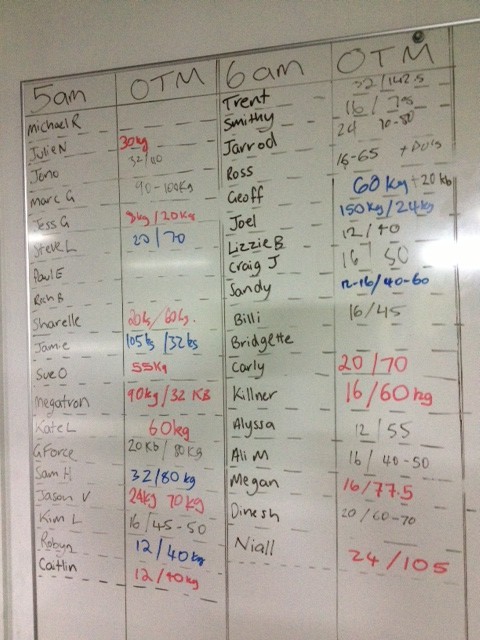 5am OTM 6am OTM
Michael R
Julie N 30kg
Jono 32/110
Marc G 90-100kg
Jess G 8kg/20kg
Steve L 20/70
Paul E
Rich B
Sharelle 20kg/60kg.
Jamie 105kg/32kg
Sue O 55kg
Megatron 90kg/32 KB
Kate L 60kg
GForce 20Kb/80kg
Sam H 32/80kg
Jason V 24kg 70kg
Kim L 16/45-50
Robyn 12/40kg
Caitlin 12/40kg
Trent 32/142.5
Smithy 16/75
Jarrod 24 70-80
Ross 16-65
Geoff 60kg+20kb
Joel 150kg/24kg
Lizzie B 12/40
Craig J 16/50
Sandy 12-16/40-60
Billi 16/45
Bridgette
Carly 20/70
Killner 16/60kg
Alyssa 12/55
Ali M 16/40-50
Megan 16/77.5
Dinesh 20/60-70
Niall 24/105